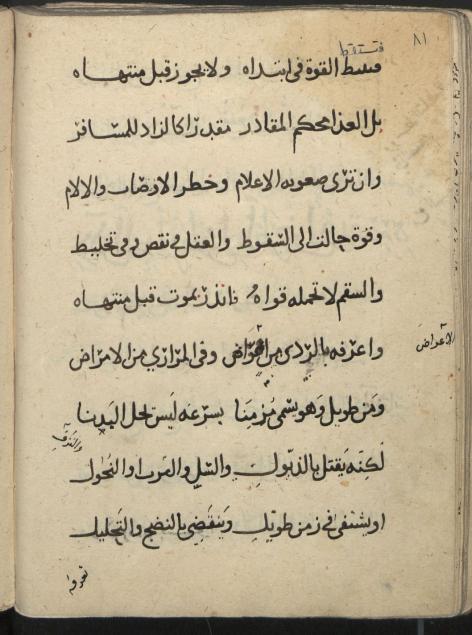 ٨١
فتسقط
فتسقط القوة فى ابتداه ولا يجوز قبل منتهاه
بل الغذا محكم المقادر مقدرا كالزاد للمسافر
وان ترى صعوبه الاعلام وخطر الاوصاب والالام
وقوة حالت الى السقوط والعقل فى نقص وفى تخليط
والسقم لا تحمله قواه فانذر بموت قبل منتهاه
واعرفه بالردى من الاعراض وفى المرازى من الامراض
الاعراض
ومن طويل وهو يسمى مزمنا بسرعه ليس لحل البدنا
لكنه يقتل بالذبول والسل والضمرا والنحول
او يشتفى فى زمن طويل وينقضى بالنضج والتحليل